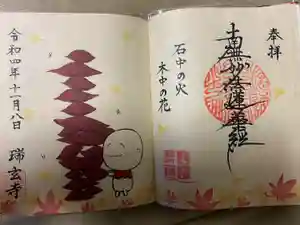 奉拝
南無妙法蓮華経
石中の火
木中の花
令和四年十一月八日
瑞玄寺